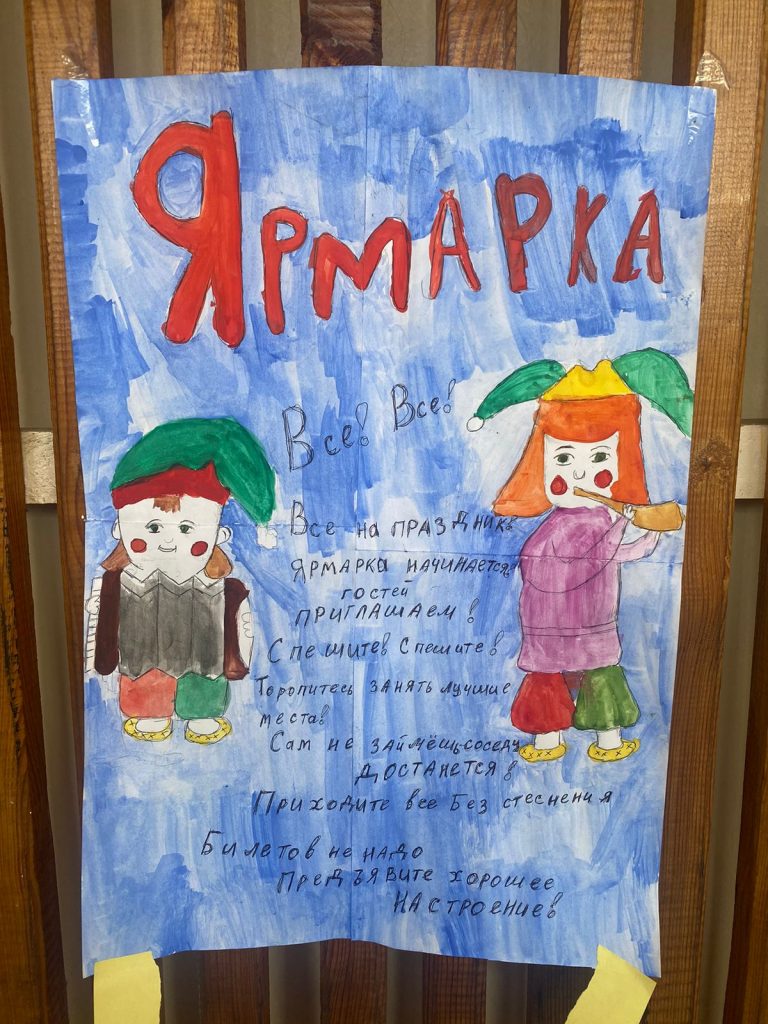 ЯРМАРКА
Все! Все!
Все на ПРАЗДНИК!
ЯРМАРКА НАЧИНАЕТСЯ!
гостей
ПРИГЛАШАЕМ!
Спешите! Спешите!
Торопитесь ЗАНЯТЬ лучшие
места!
Сам не ЗАЙМЁШЬ-соседу
ДОСТАНЕТСЯ!
Приходите все Без стеснения
Билетов не надо
Предъявите хорошее
НАСТРОЕНИЕ!